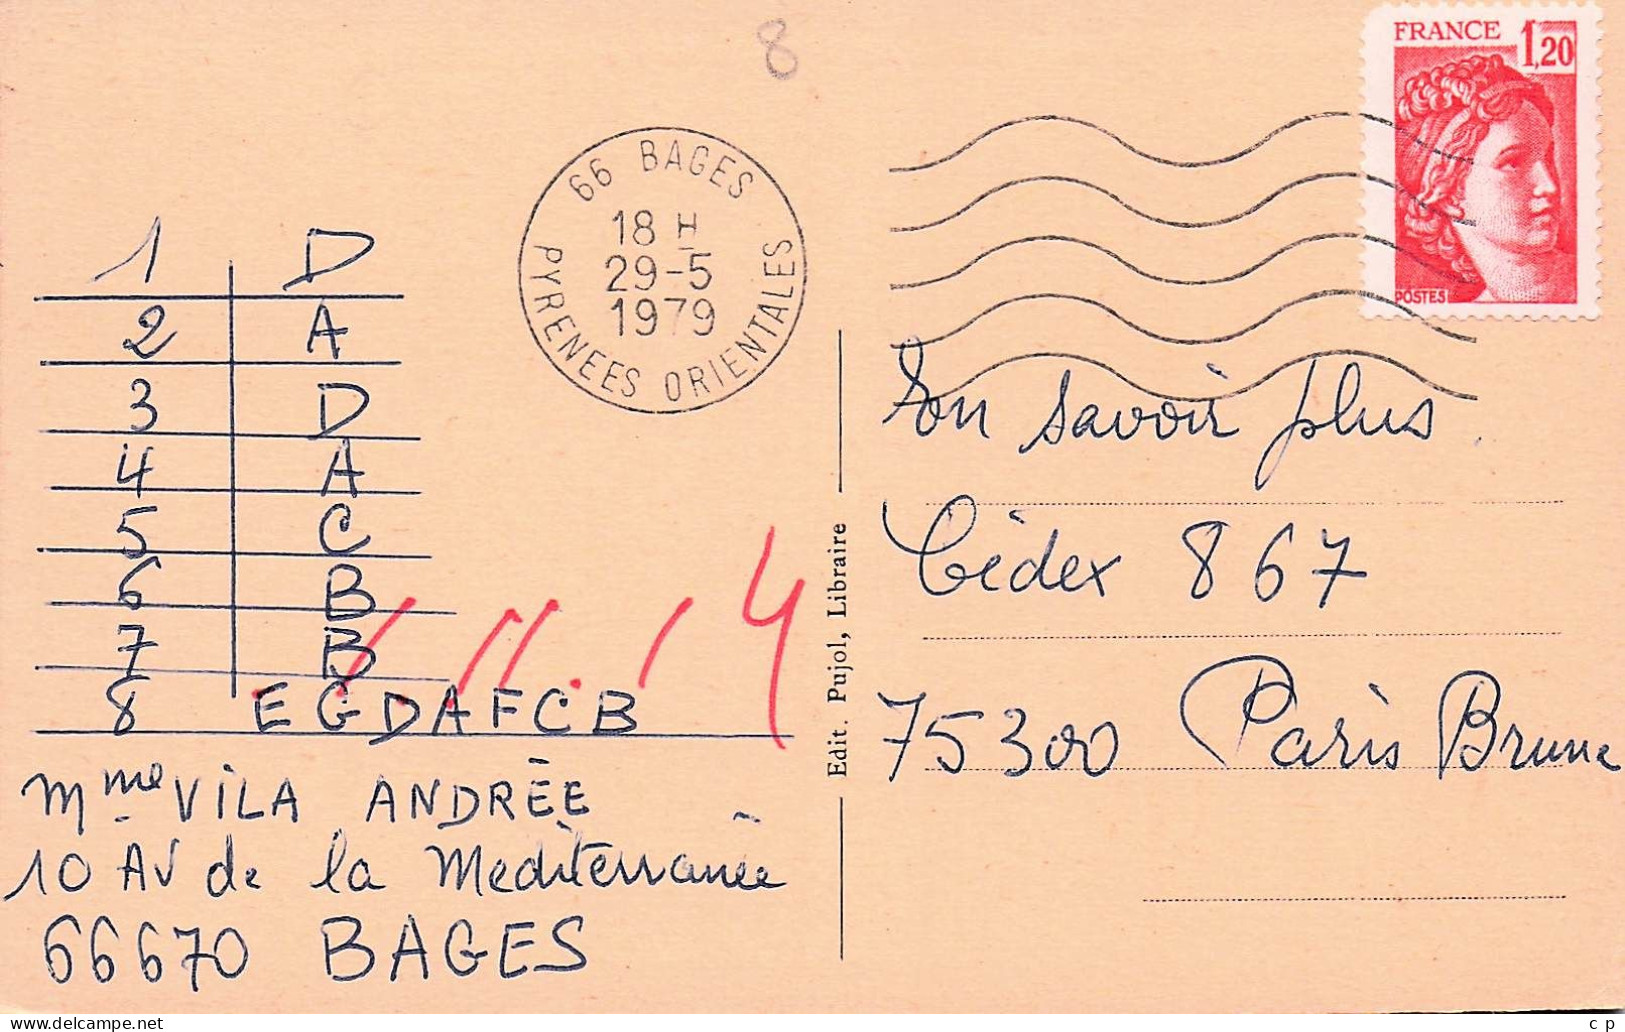 8
FRANCE 1,20
POSTES
66 BAGES
18 H
29-5
1979
PYRENEES ORIENTALES
1 D
2 A
3 D
4 A
5 C
6 B
7 B
8 E G D A F C B
Mme VILA ANDRÉE
10 AV de la Mediterranée
66670 BAGES
Edit. Pujol, Libraire
savoir plus
Cédex 867
75300 Paris Brune
c p